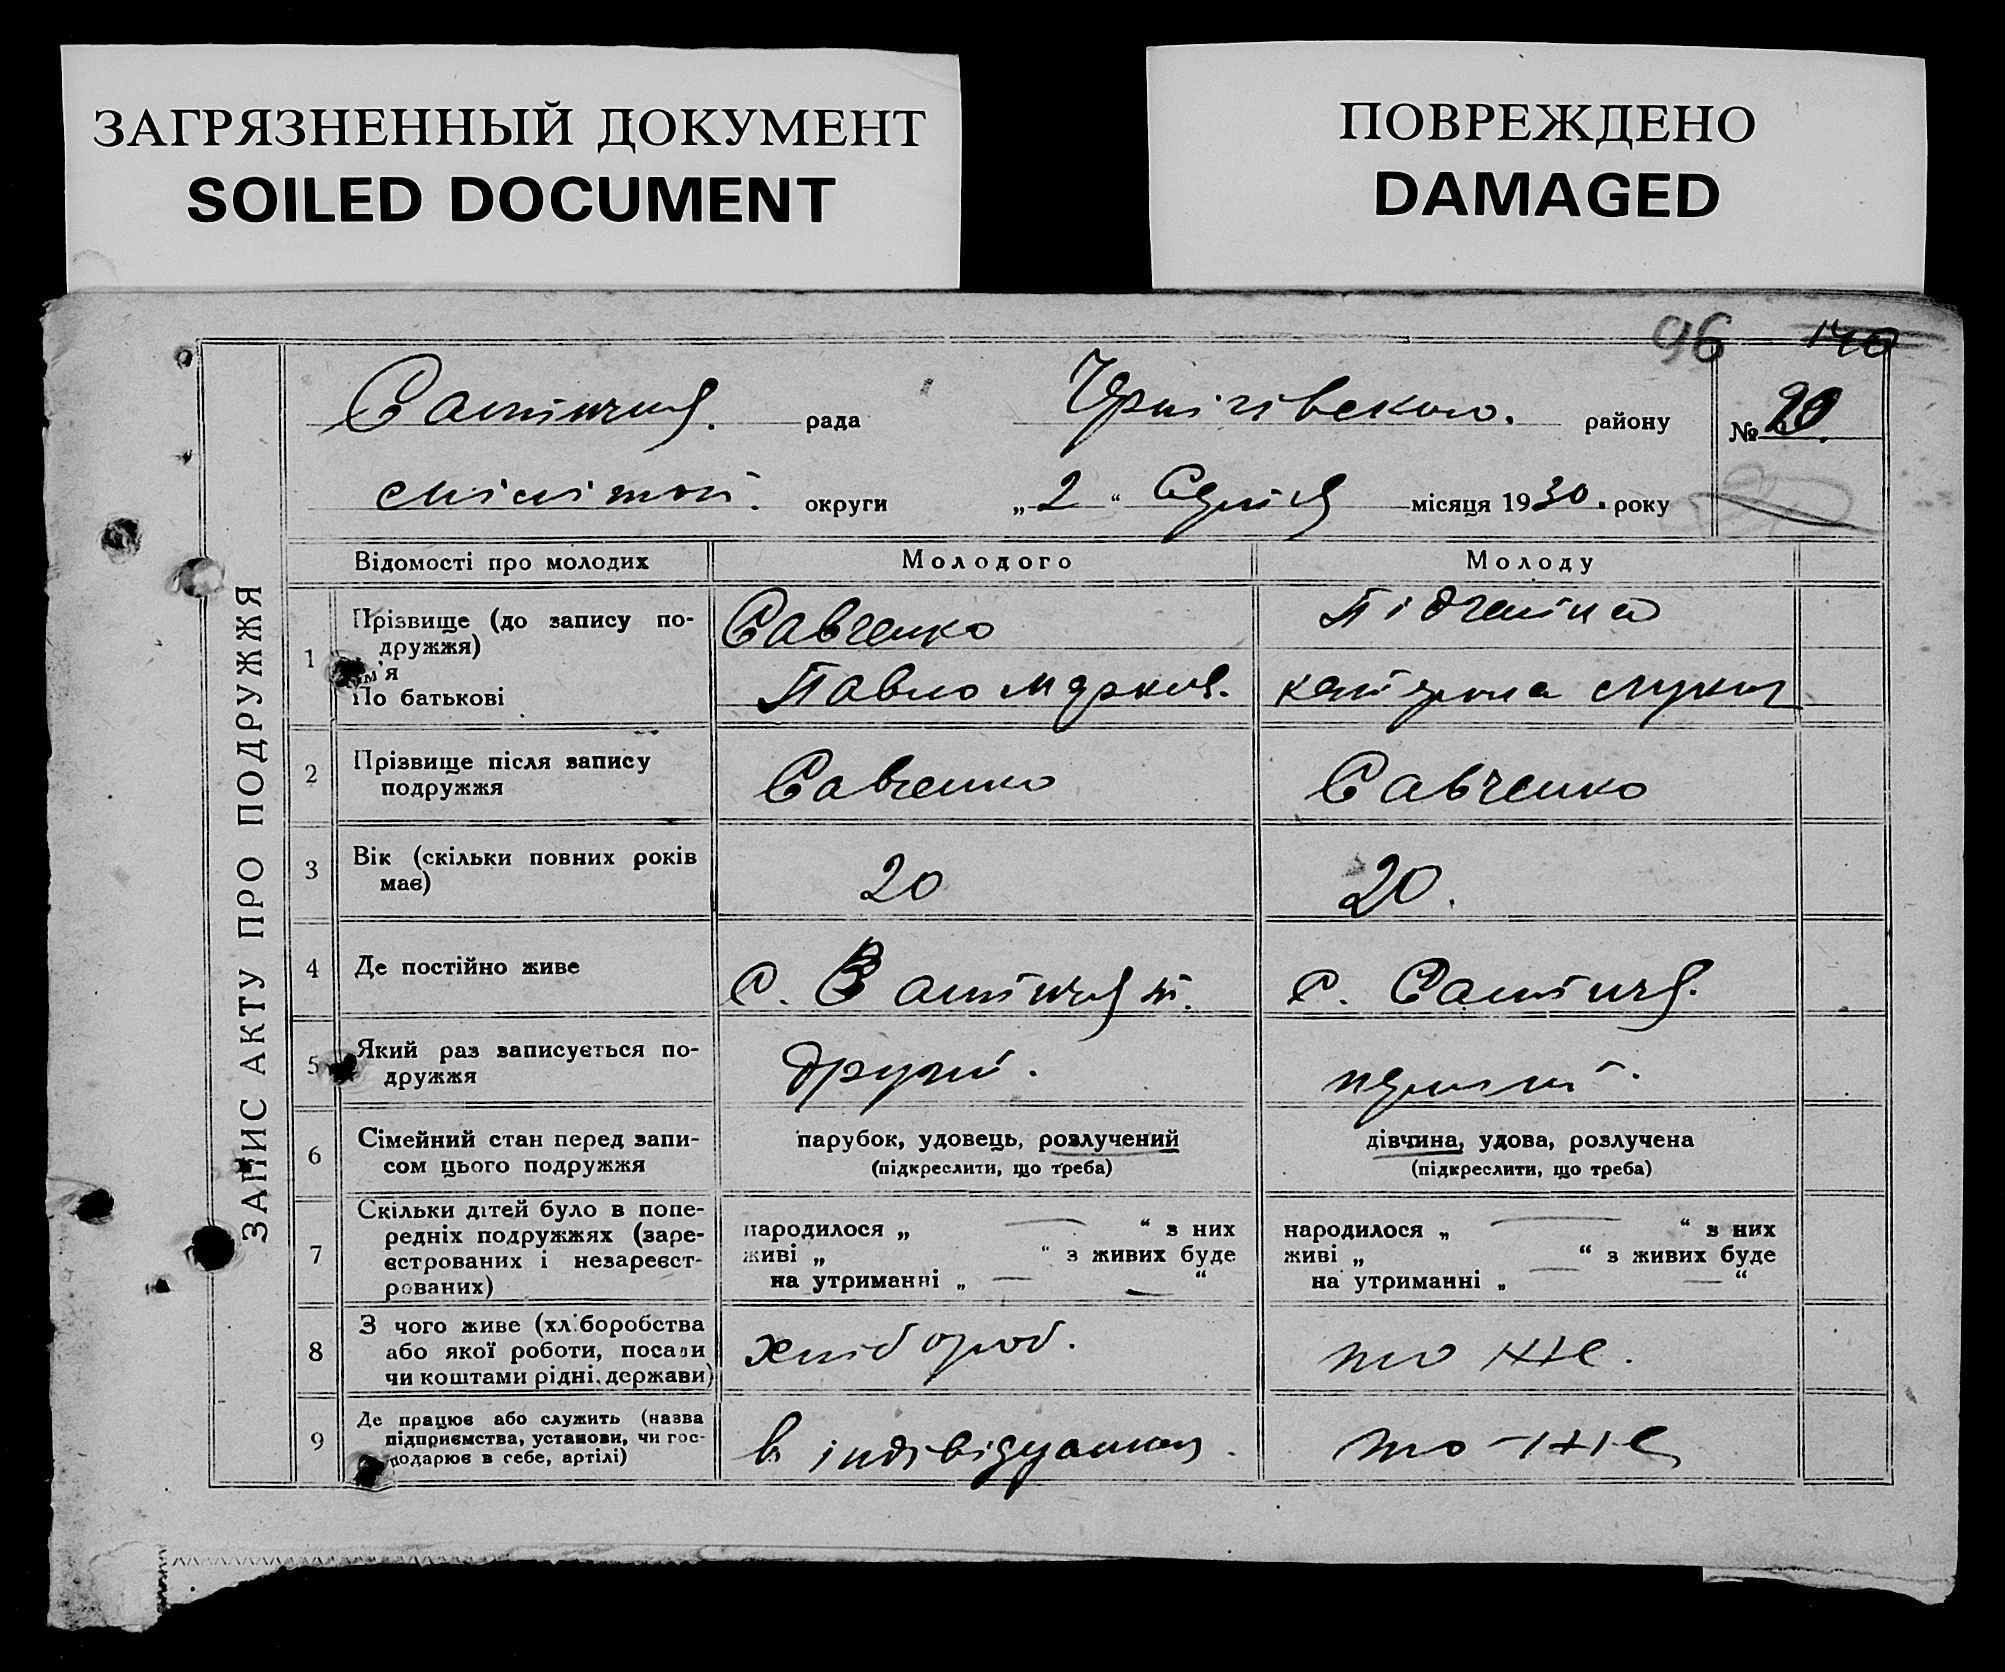 ЗАГРЯЗНЕННЫЙ ДОКУМЕНТ
SOILED DOCUMENT
ПОВРЕЖДЕНО
DAMAGED
96 140
рада Чернігівського. району № 20.
округи „ 2 “ Серпня місяця 1930. року
ЗАПИС АКТУ ПРО ПОДРУЖЖЯ
Відомості про молодих Молодого Молоду
1 Прізвище (до запису подружжя) Савченко
Ім'я По батькові Павло Марков. Катерина Лукив
2 Прізвище після запису подружжя Савченко Савченко
3 Вік (скільки повних років має) 20 20.
4 Де постійно живе с. с.
5 Який раз записується подружжя другий. перший.
6 Сімейний стан перед записом цього подружжя парубок, удовець, розлучений дівчина, удова, розлучена
(підкреслити, що треба) (підкреслити, що треба)
7 Скільки дітей було в попередніх подружжях (зареєстрованих і незареєстрованих)
народилося „ — “ з них народилося „ — “ з них
живі „ “ з живих буде живі „ “ з живих буде
на утриманні „ — — “ на утриманні „ — — “
8 З чого живе (хліборобства або якої роботи, посади чи коштами рідні, держави) хлібороб. то же.
9 Де працює або служить (назва підприємства, установи, чи господарює в себе, артілі) в то-же